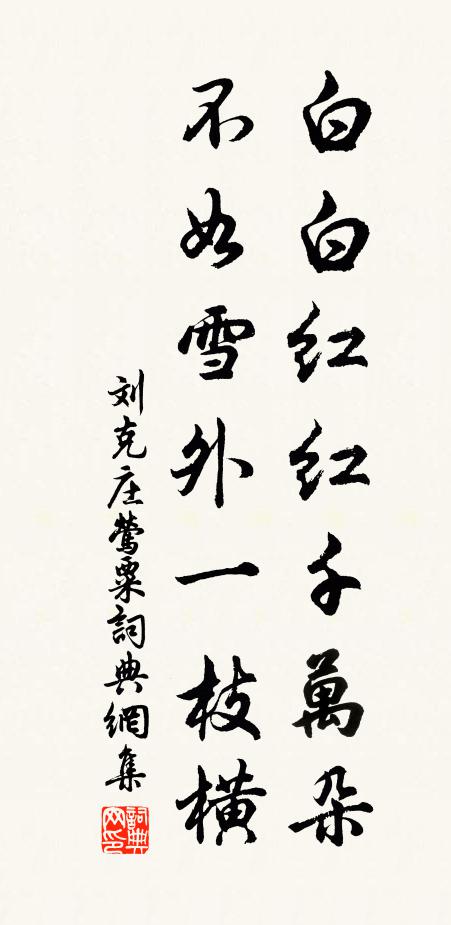 白白红红千萬朵
不如雪外一枝橫
刘克庄鶯粟詞典網集
詞典網印